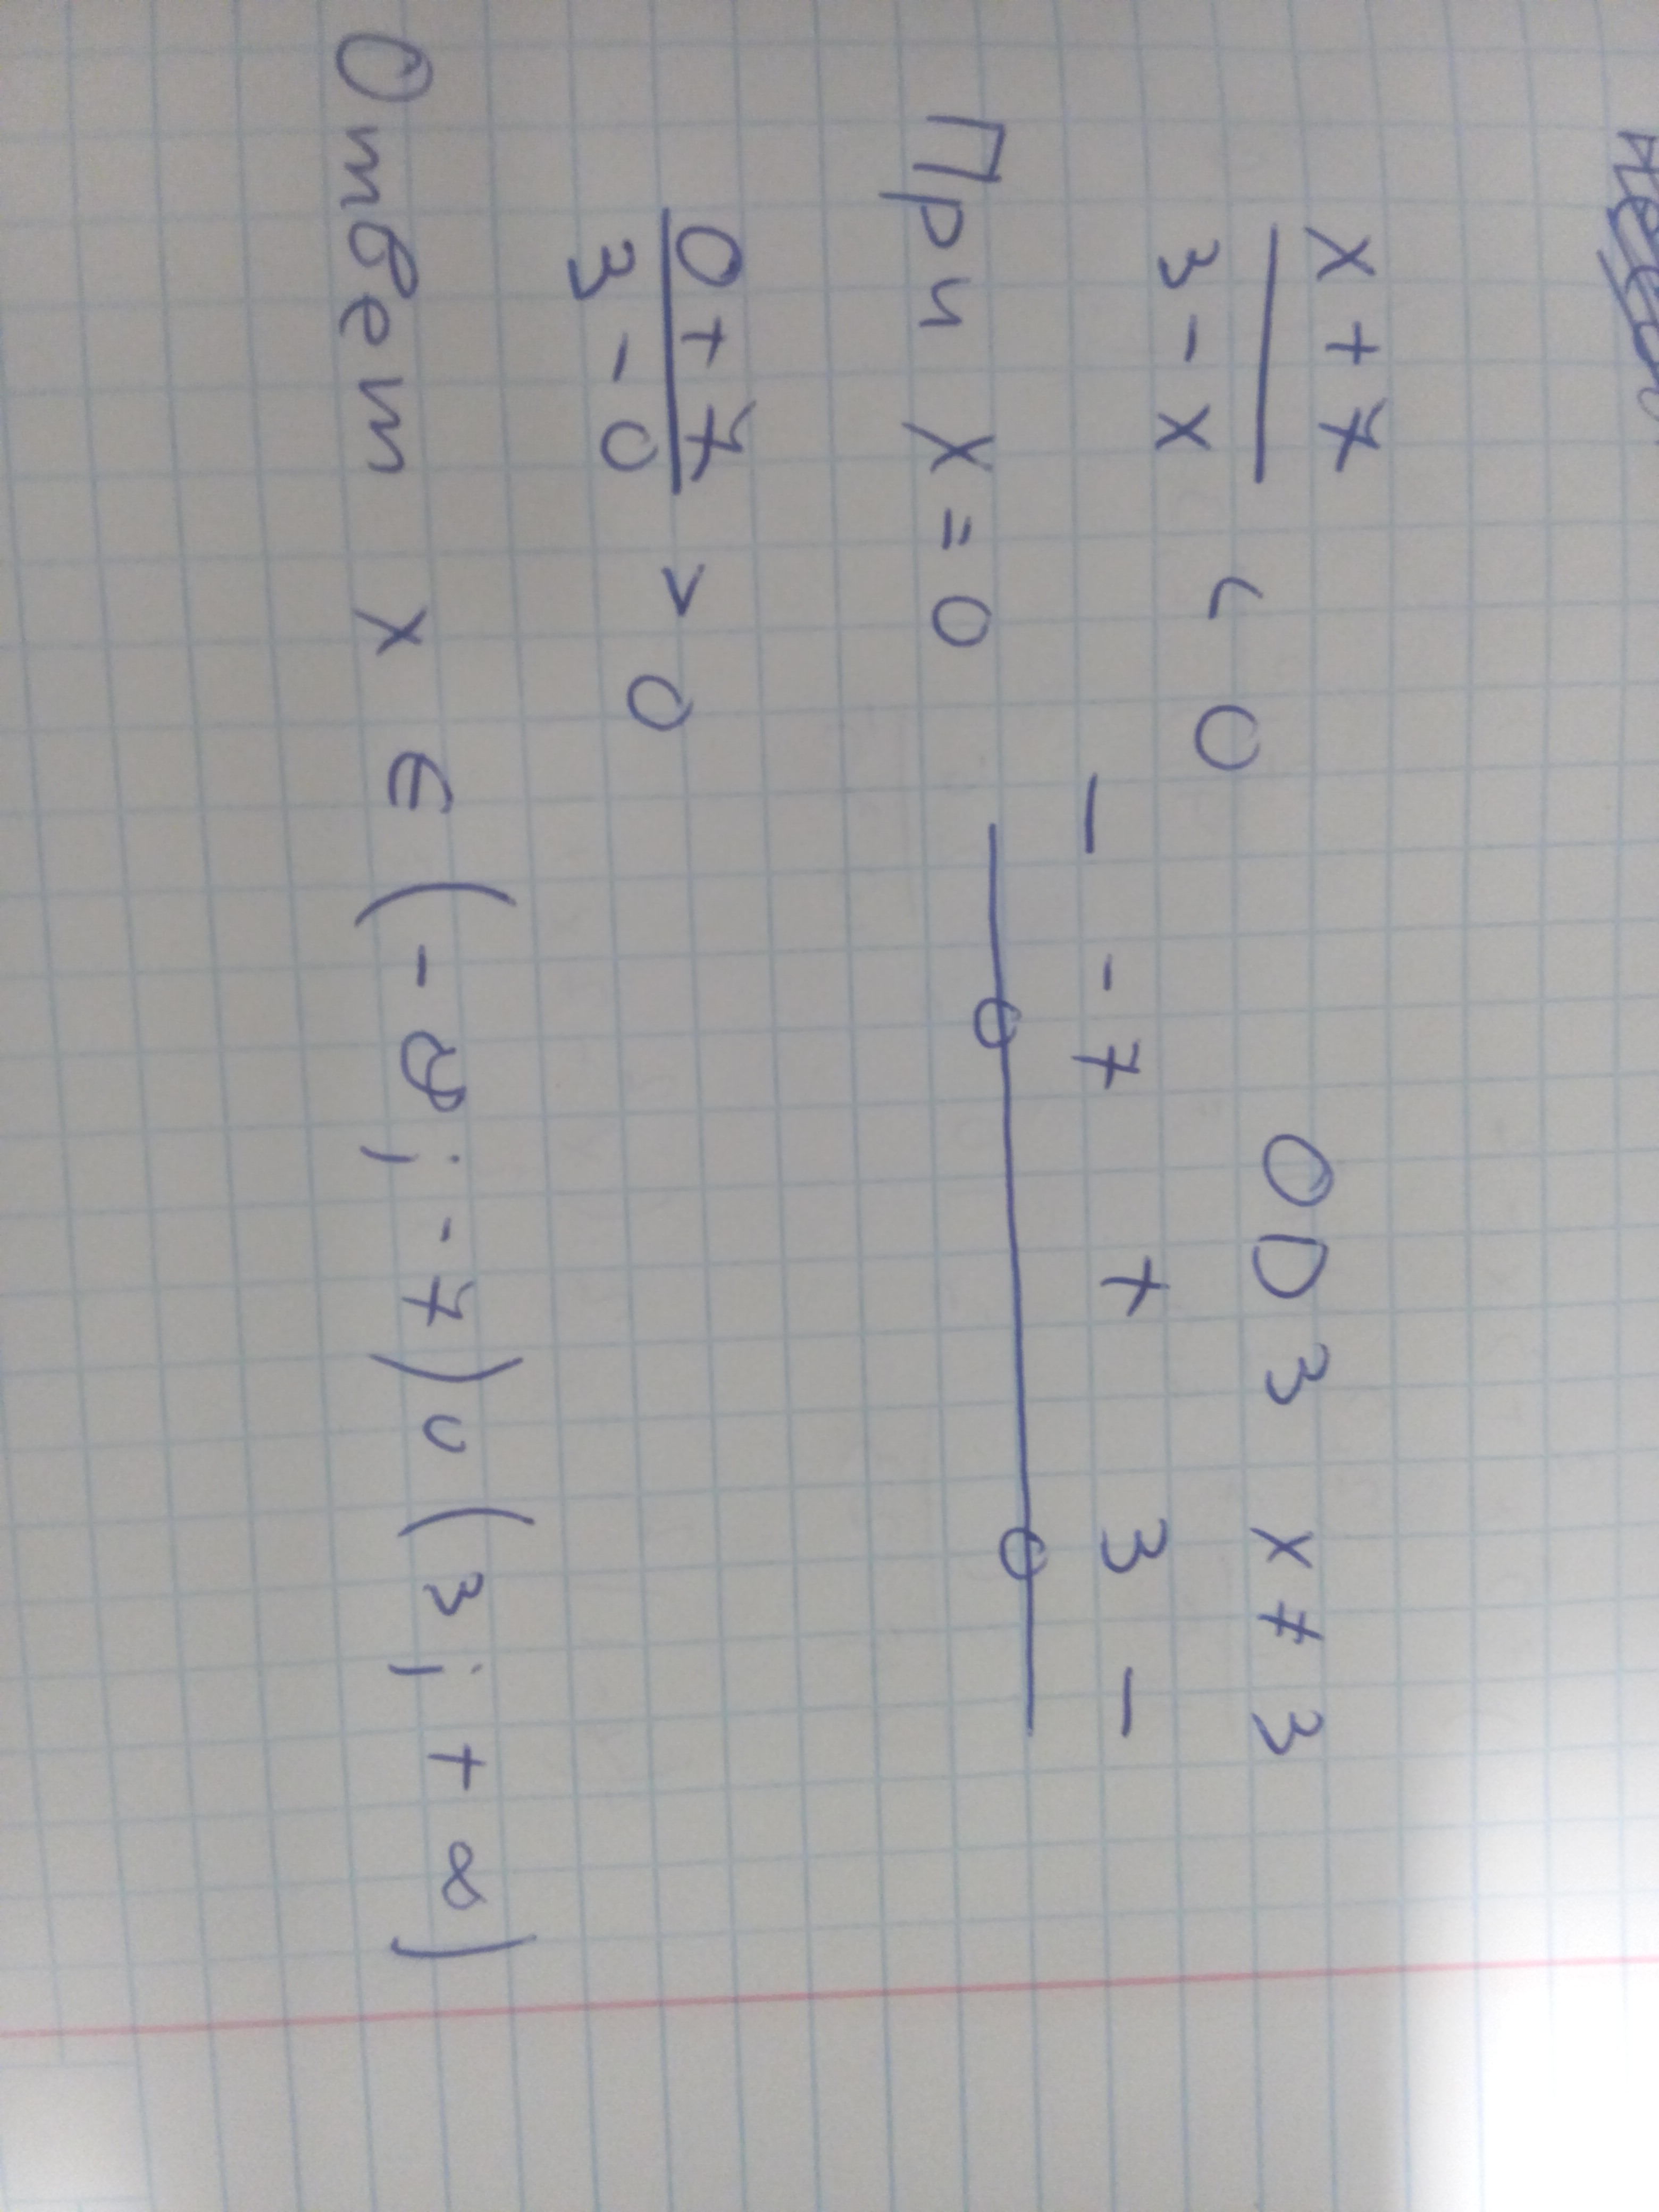 x + 7
3 - x
< 0
ОДЗ x ≠ 3
- -7 + 3 -
При x = 0
0 + 7
3 - 0
> 0
Ответ x ∈ (-∞; -7) ∪ (3; +∞)